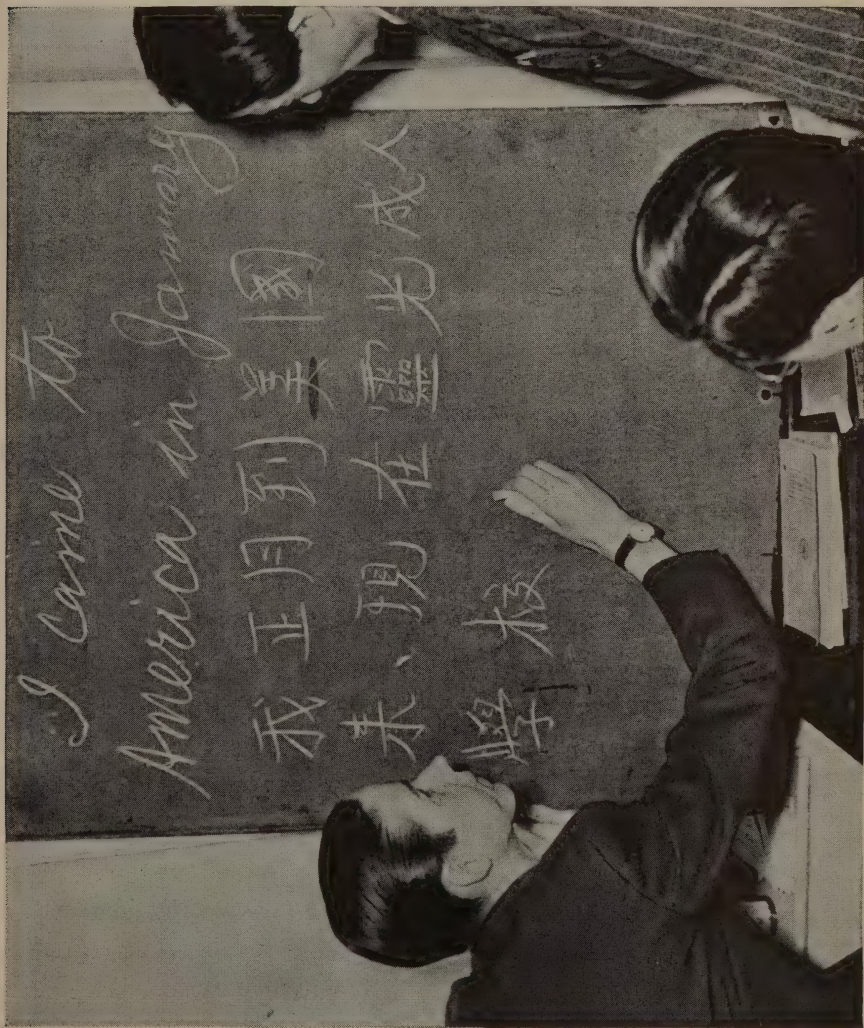 I came to
America in January
我正月到美國
来、現在靈光成人
學校